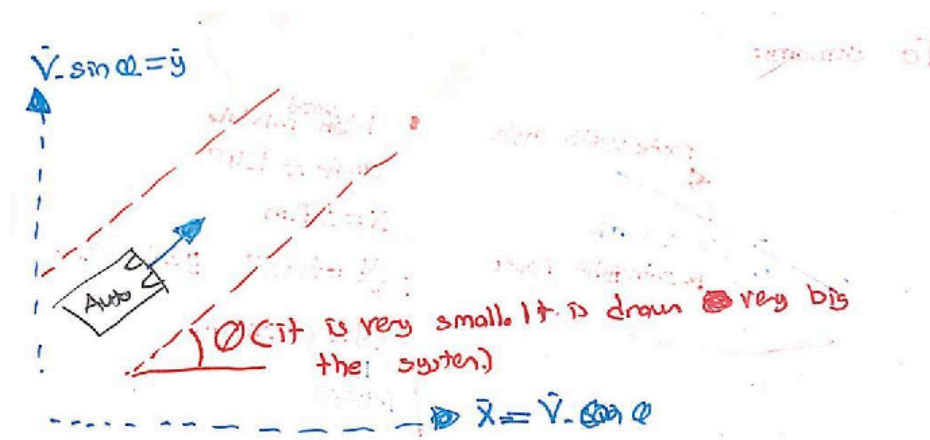 V̄. sin θ = ȳ
Auto
∅ (it is very small. It is drawn very big
the system.)
X̄ = V̄.